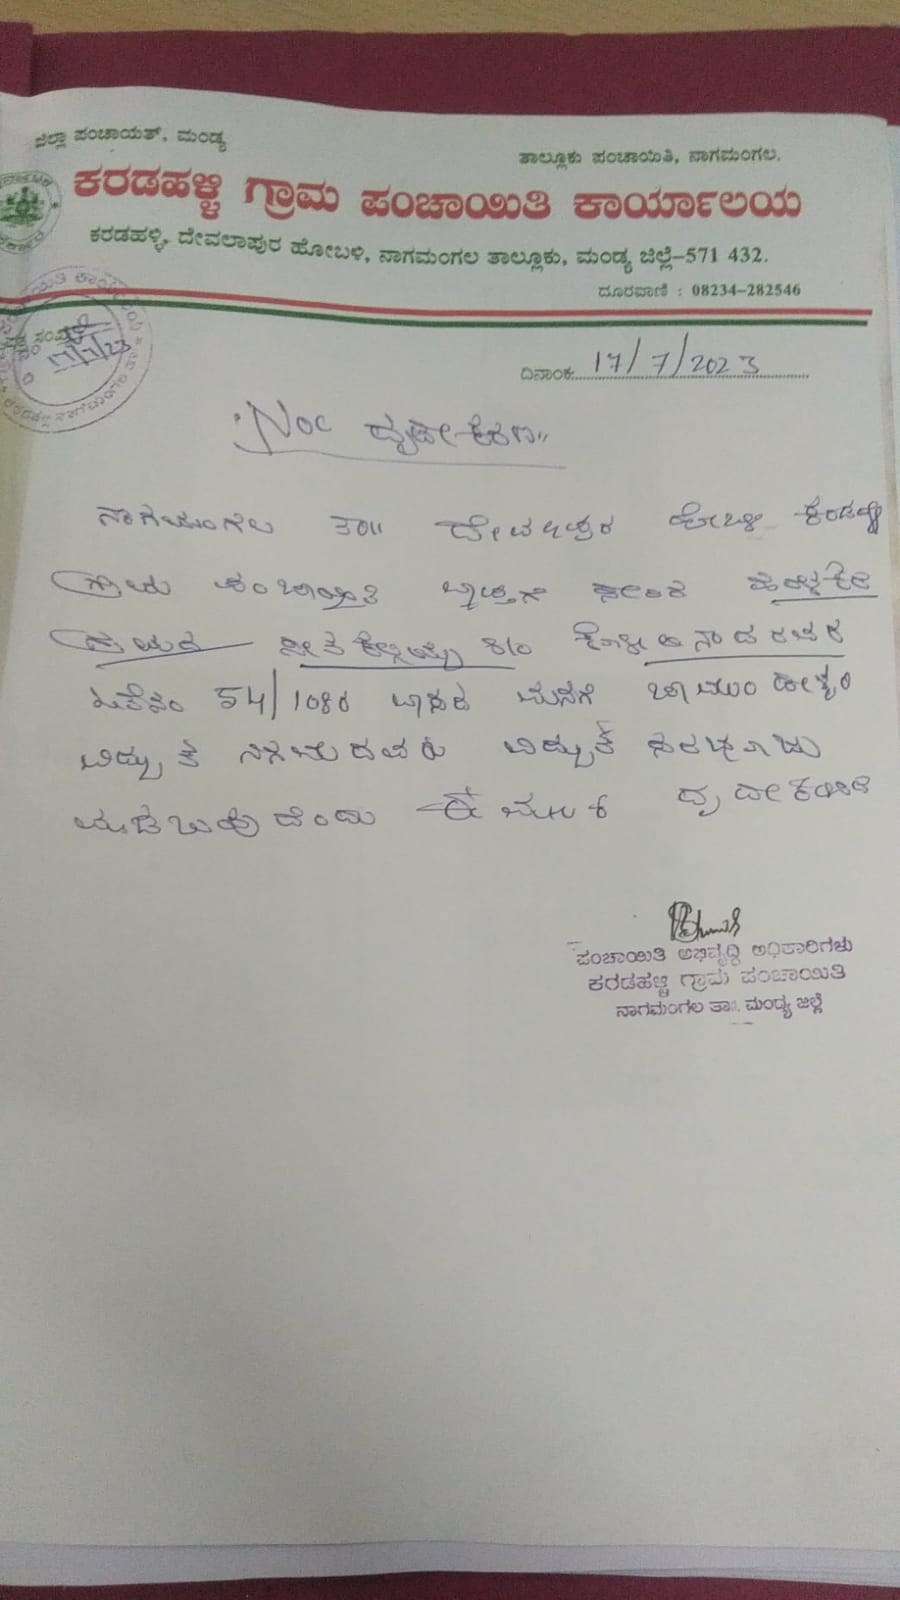 ಜಿಲ್ಲಾ ಪಂಚಾಯತ್, ಮಂಡ್ಯ
ತಾಲ್ಲೂಕು ಪಂಚಾಯಿತಿ, ನಾಗಮಂಗಲ.
ಕರಡಹಳ್ಳಿ ಗ್ರಾಮ ಪಂಚಾಯಿತಿ ಕಾರ್ಯಾಲಯ
ಕರಡಹಳ್ಳಿ, ದೇವಲಾಪುರ ಹೋಬಳಿ, ನಾಗಮಂಗಲ ತಾಲ್ಲೂಕು, ಮಂಡ್ಯ ಜಿಲ್ಲೆ-571 432.
ದೂರವಾಣಿ : 08234-282546
17/7/23
ದಿನಾಂಕ: 17/7/2023
Noc ದೃಢೀಕರಣ
ನಾಗಮಂಗಲ ತಾ॥ ದೇವಲಾಪುರ ಹೋಬಳಿ ಕರಡಹಳ್ಳಿ
ಗ್ರಾಮ ಪಂಚಾಯಿತಿ ವ್ಯಾಪ್ತಿಗೆ ಸೇರಿದ
ಗ್ರಾಮದ
54/108 ಮನೆಗೆ ಚಾಮುಂಡೇಶ್ವರಿ
ವಿದ್ಯುತ್ ನಿಗಮದವರು ವಿದ್ಯುತ್ ಸರಬರಾಜು
ಮಾಡಬಹುದೆಂದು ಈ ಮೂಲಕ ದೃಢೀಕರಿಸಿದೆ
ಪಂಚಾಯಿತಿ ಅಭಿವೃದ್ಧಿ ಅಧಿಕಾರಿಗಳು
ಕರಡಹಳ್ಳಿ ಗ್ರಾಮ ಪಂಚಾಯಿತಿ
ನಾಗಮಂಗಲ ತಾ. ಮಂಡ್ಯ ಜಿಲ್ಲೆ